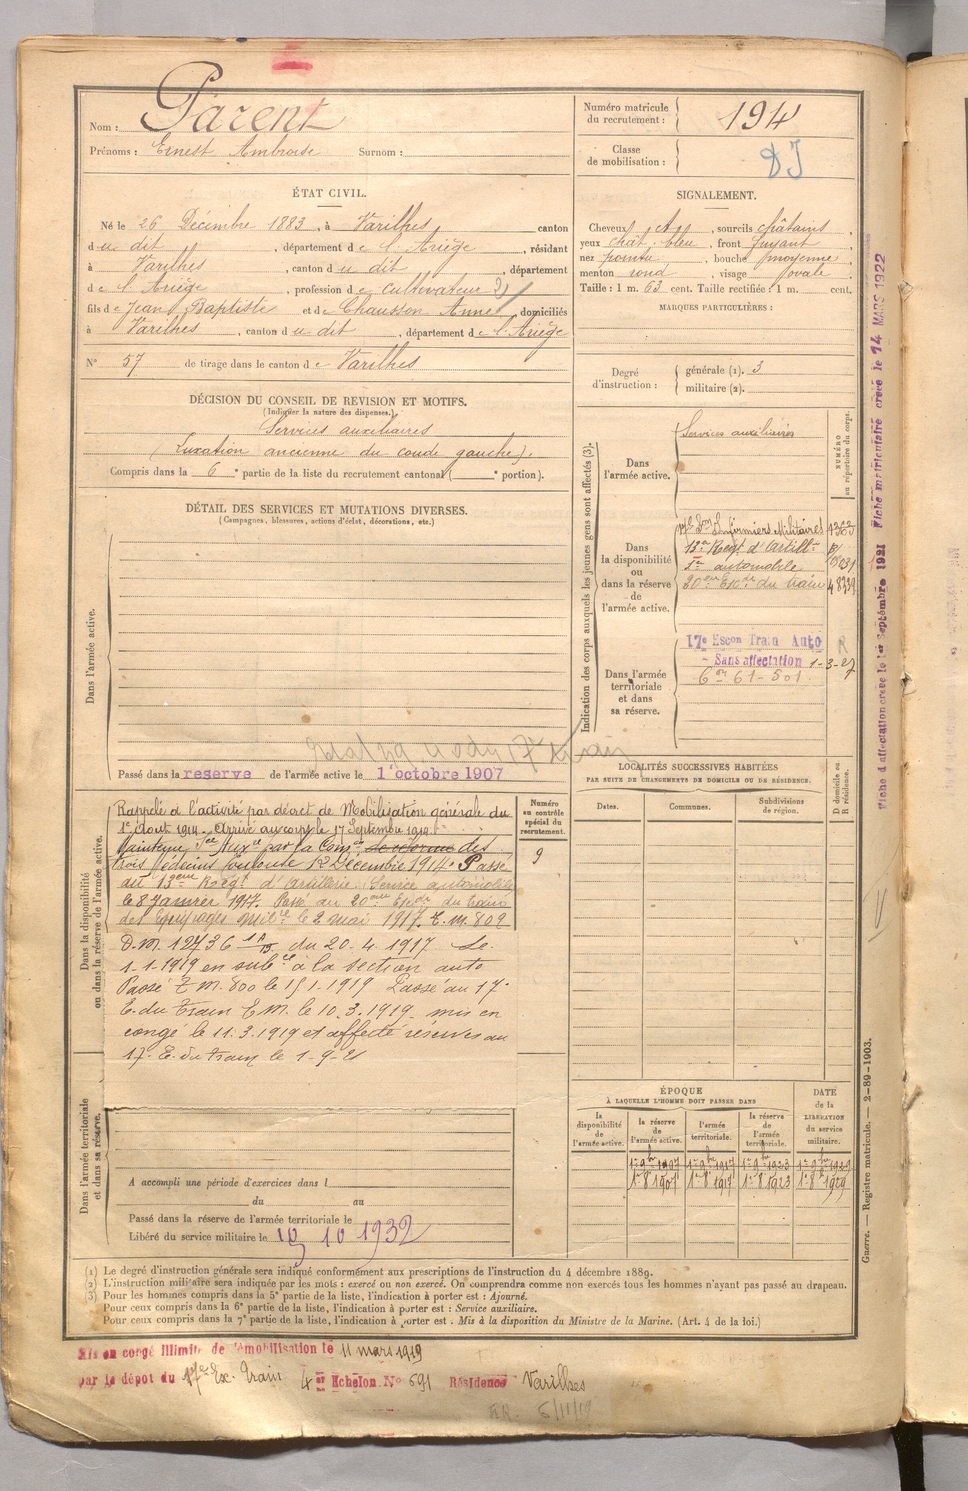 Nom : Parent
Prénoms : Ernest Ambroise Surnom :
Numéro matricule
du recrutement : 194
Classe
de mobilisation :
ÉTAT CIVIL.
Né le 26 Décembre 1883, à Varilhes canton
du dit, département de l'Ariège, résidant
à Varilhes, canton du dit, département
de l'Ariège, profession de cultivateur
fils de Jean Baptiste et de Chausson Anne, domiciliés
à Varilhes, canton du dit, département de l'Ariège
N° 57 de tirage dans le canton de Varilhes
SIGNALEMENT.
Cheveux, sourcils châtains,
yeux chât. bleu, front fuyant,
nez pointu, bouche moyenne,
menton rond, visage ovale.
Taille : 1 m. 63 cent. Taille rectifiée : 1 m. cent.
MARQUES PARTICULIÈRES :
Degré
d'instruction :
générale (1). 3
militaire (2).
DÉCISION DU CONSEIL DE REVISION ET MOTIFS.
(Indiquer la nature des dispenses.)
Services auxiliaires
(Luxation ancienne du coude gauche).
Compris dans la 6e partie de la liste du recrutement cantonal ( e portion).
DÉTAIL DES SERVICES ET MUTATIONS DIVERSES.
(Campagnes, blessures, actions d'éclat, décorations, etc.)
Dans l'armée active.
Passé dans la reserve de l'armée active le 1 octobre 1907
Indication des corps auxquels les jeunes gens sont affectés (3).
NUMÉRO
au répertoire du corps.
Dans
l'armée active.
Services auxiliaires
Dans
la disponibilité
ou
dans la réserve
de
l'armée active.
17e Son Infirmiers Militaires
13e Regt d'Artillie
automobile
20eme Eson du train
Dans l'armée
territoriale
et dans
sa réserve.
17e Escon Train Auto
- Sans affectation 1-3-27
Fiche d'affectation créée le 1er Septembre 1921 Fiche matriculaire créée le 14 MARS 1922
LOCALITÉS SUCCESSIVES HABITÉES
PAR SUITE DE CHANGEMENTS DE DOMICILE OU DE RÉSIDENCE.
Dates.
Communes.
Subdivisions
de région.
D domicile ou
R résidence.
Dans la disponibilité
ou dans la réserve de l'armée active.
Numéro
au contrôle
spécial du
recrutement.
9
Rappelé à l'activité par décret de Mobilisation générale du
1er Août 1914. Arrivé au corps le 17 Septembre 1914.
Maintenu Sce Auxre par la Comon de réforme des
trois Médecins Toulouse 12 Décembre 1914. Passé
au 13ème Régt d'Artillerie Service automobile
le 8 janvier 1917. Passé au 20eme Eson du train
des Equipages milit. le 2 mai 1917. T.M. 809
D.M. 12736 du 20.4.1917. Le
1-1-1919 en subce à la section auto
Passé T.M. 800 le 15 1-1919 Passé au 17e
E. du Train E.M. le 10.3.1919 mis en
congé le 11.3.1919 et affecté réserves au
17. E. du Train le 1-9-21
ÉPOQUE
À LAQUELLE L'HOMME DOIT PASSER DANS
la
disponibilité
de
l'armée active.
la réserve
de
l'armée active.
l'armée
territoriale.
la réserve
de
l'armée
territoriale.
DATE
de la
LIBÉRATION
du service
militaire.
1er 8 1907 1er 8 1917 1er 8 1923 1er 8 1929
Dans l'armée territoriale
et dans sa réserve.
A accompli une période d'exercices dans l
du au
Passé dans la réserve de l'armée territoriale le
Libéré du service militaire le 10 1932
Guerre. — Registre matricule. — 2-89-1903.
(1) Le degré d'instruction générale sera indiqué conformément aux prescriptions de l'instruction du 4 décembre 1889.
(2) L'instruction militaire sera indiquée par les mots : exercé ou non exercé. On comprendra comme non exercés tous les hommes n'ayant pas passé au drapeau.
(3) Pour les hommes compris dans la 5e partie de la liste, l'indication à porter est : Ajourné.
Pour ceux compris dans la 6e partie de la liste, l'indication à porter est : Service auxiliaire.
Pour ceux compris dans la 7e partie de la liste, l'indication à porter est : Mis à la disposition du Ministre de la Marine. (Art. 4 de la loi.)
Mis en congé illimité de démobilisation le 11 mars 1919
par le dépôt du 17e Ex. Train 4er Echelon N° 691 Résidence Varilhes
6/11/19